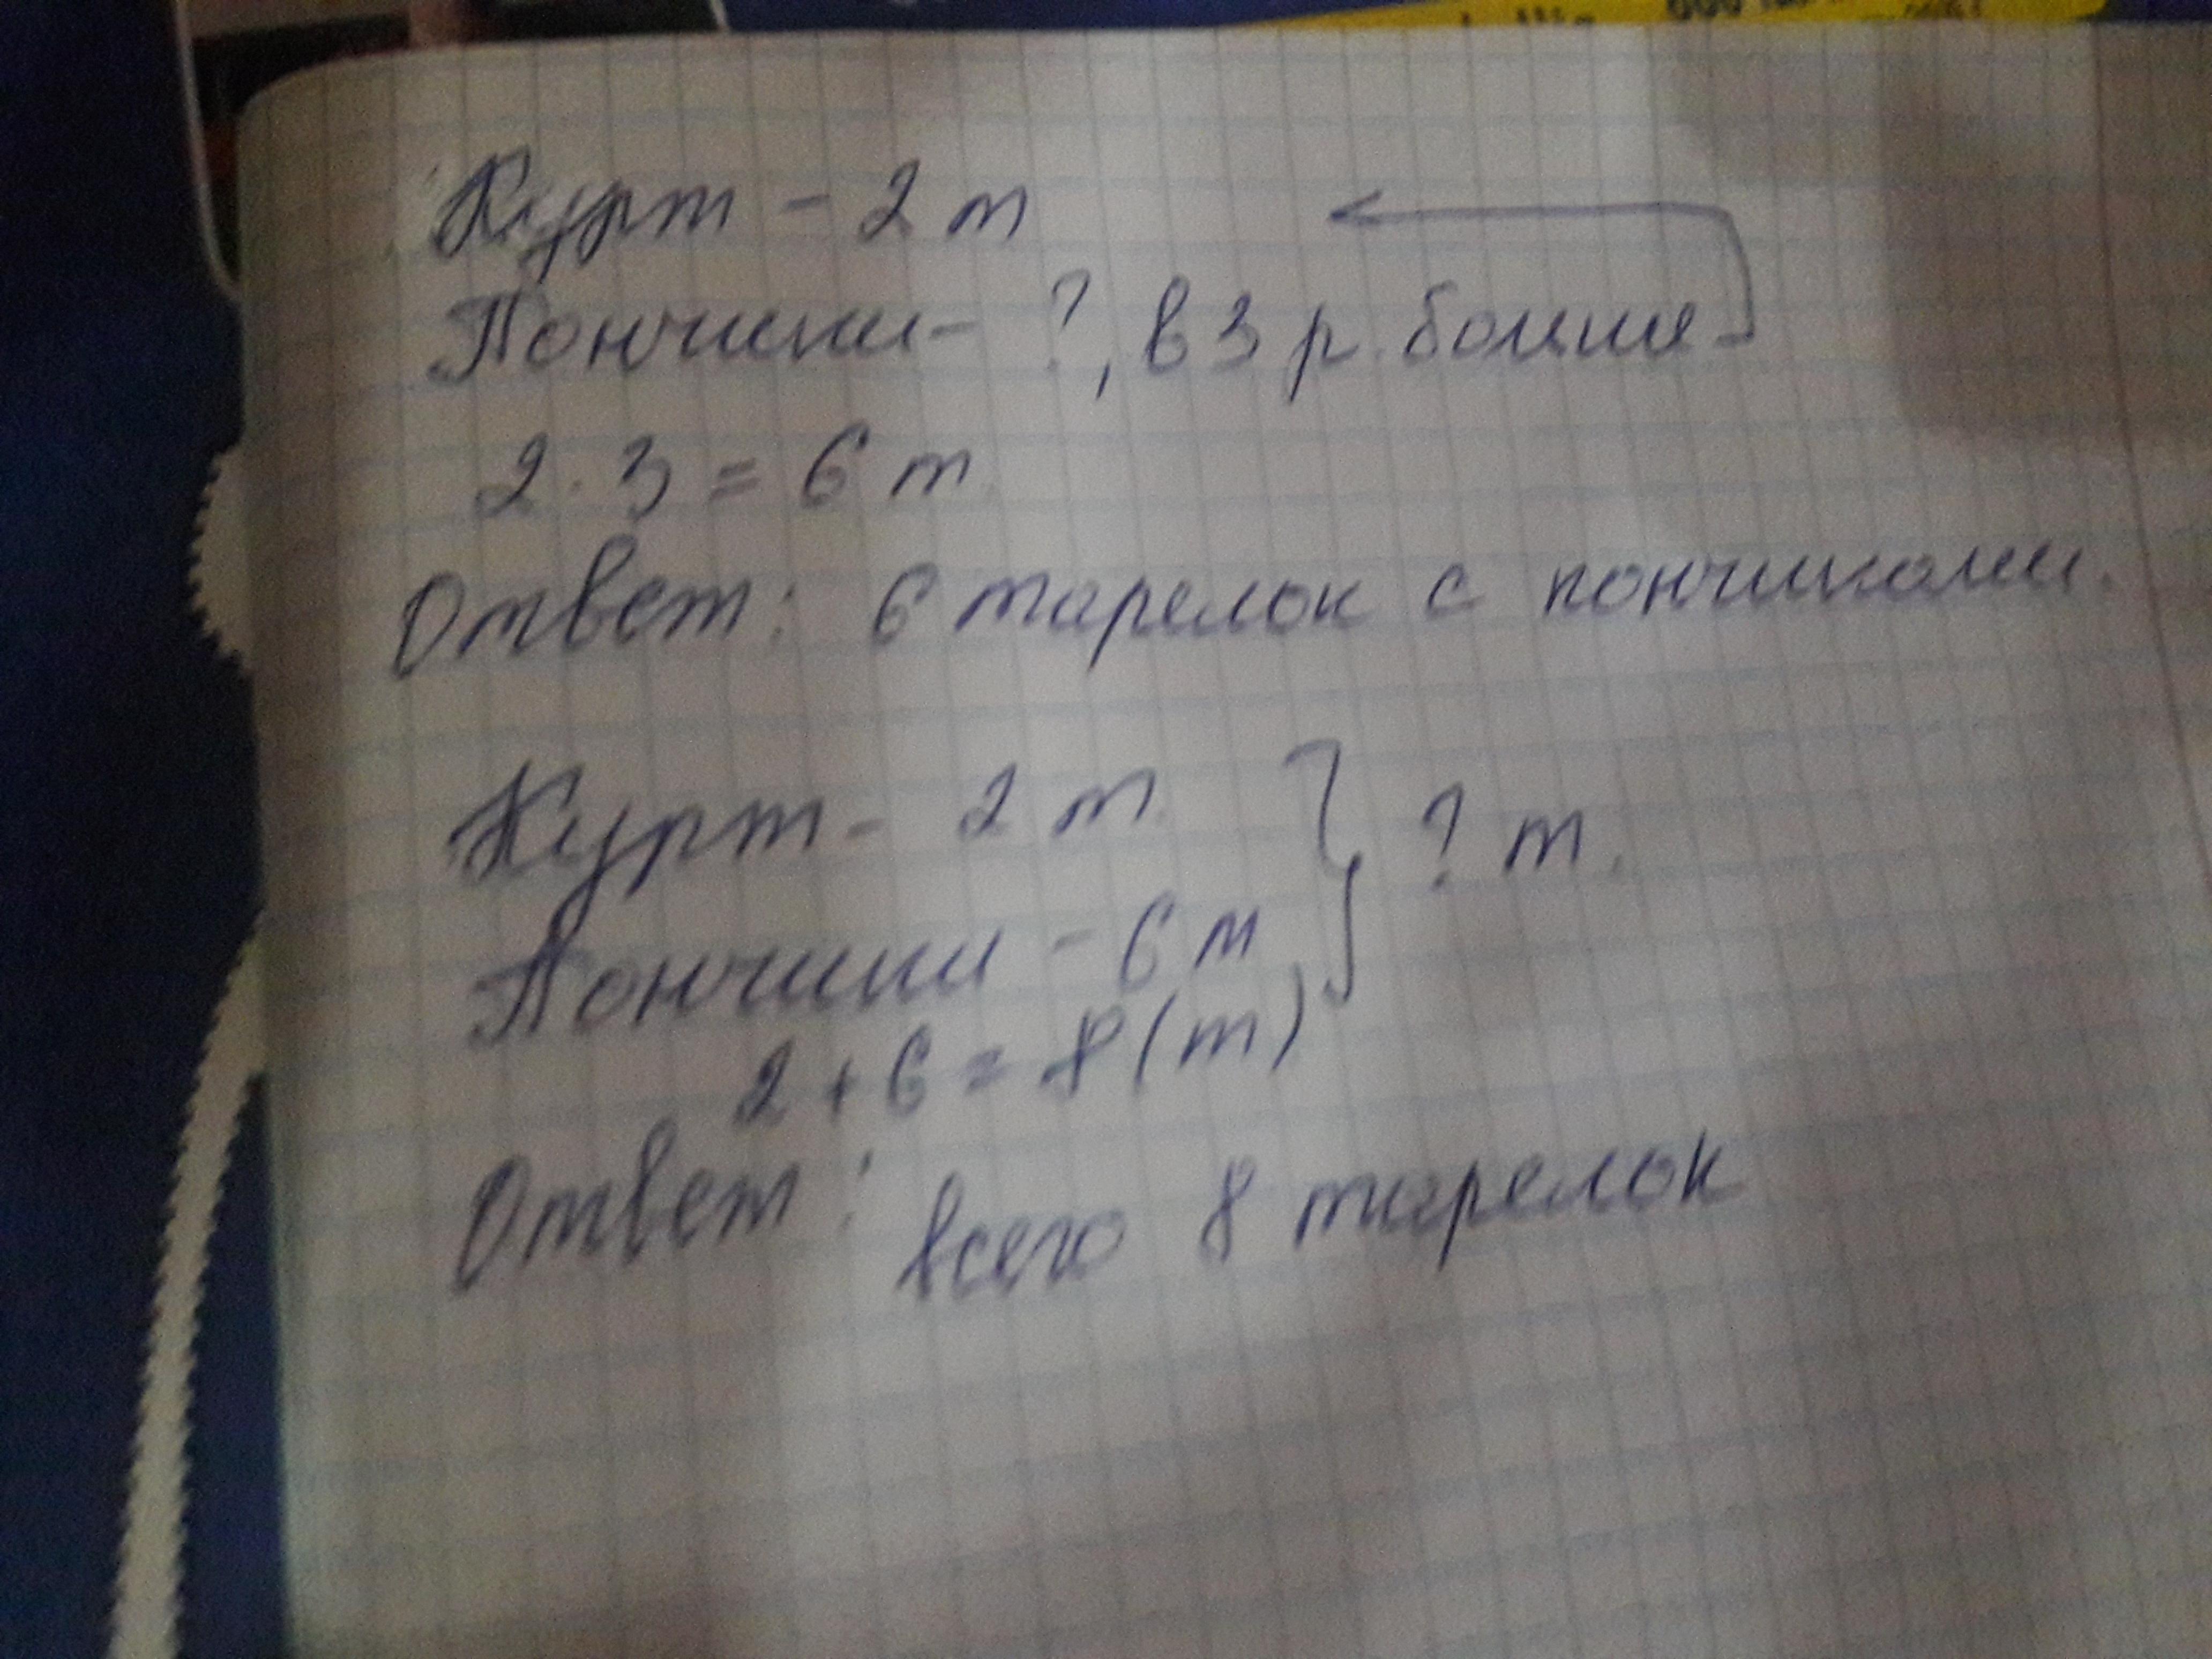 Курт - 2 т
Пончики - ?, в 3 р. больше
2 · 3 = 6 т.
Ответ: 6 тарелок с пончиками.
Курт - 2 т. } ? т.
Пончики - 6 т
2 + 6 = 8 (т)
Ответ: всего 8 тарелок